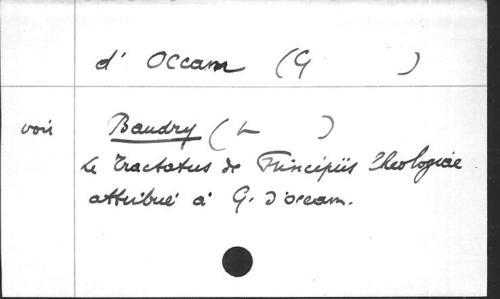 d' Occam (G )
voir Baudry (L )
Le Tractatus de Principiis Theologiae
attribué à G. d'occam.